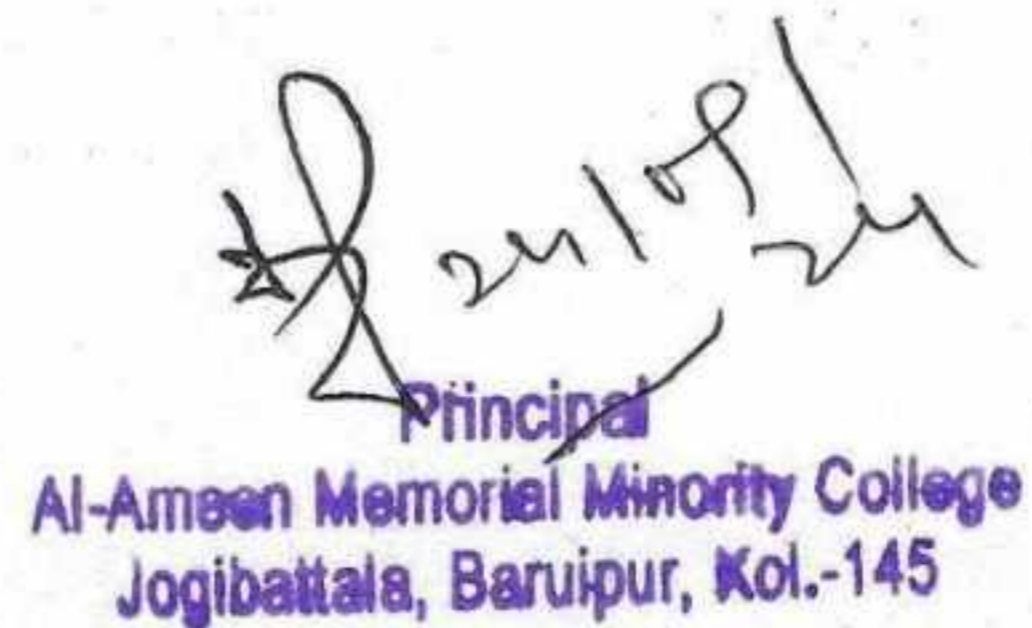 24/08/24
Principal
Al-Ameen Memorial Minority College
Jogibattala, Baruipur, Kol.-145